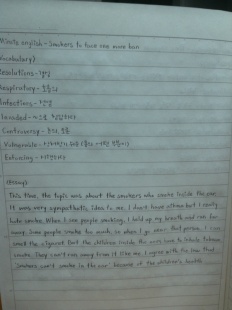 Minute english - Smokers to have one more ban
Vocabulary)
Resolutions - 결심
Respiratory - 호흡의
Infections - 감염
Intended -
Controversy - 논의, 논쟁
Vulnerable -
Enforcing -
(Essay)
This time, the topic was about the smokers who smoke inside the car.
It was very sympathetic idea to me. I don't have asthma but I really
hate smoke. When I see people smoking, I hold up my breath and run far
away. Some people smoke too much, so when I go near that person, I can
smell the cigarett. But the children inside the cars have to inhale tobacco
smoke. They can't run away from it like me. I agree with the law that
'Smokers can't smoke in the car' because of the children's health.